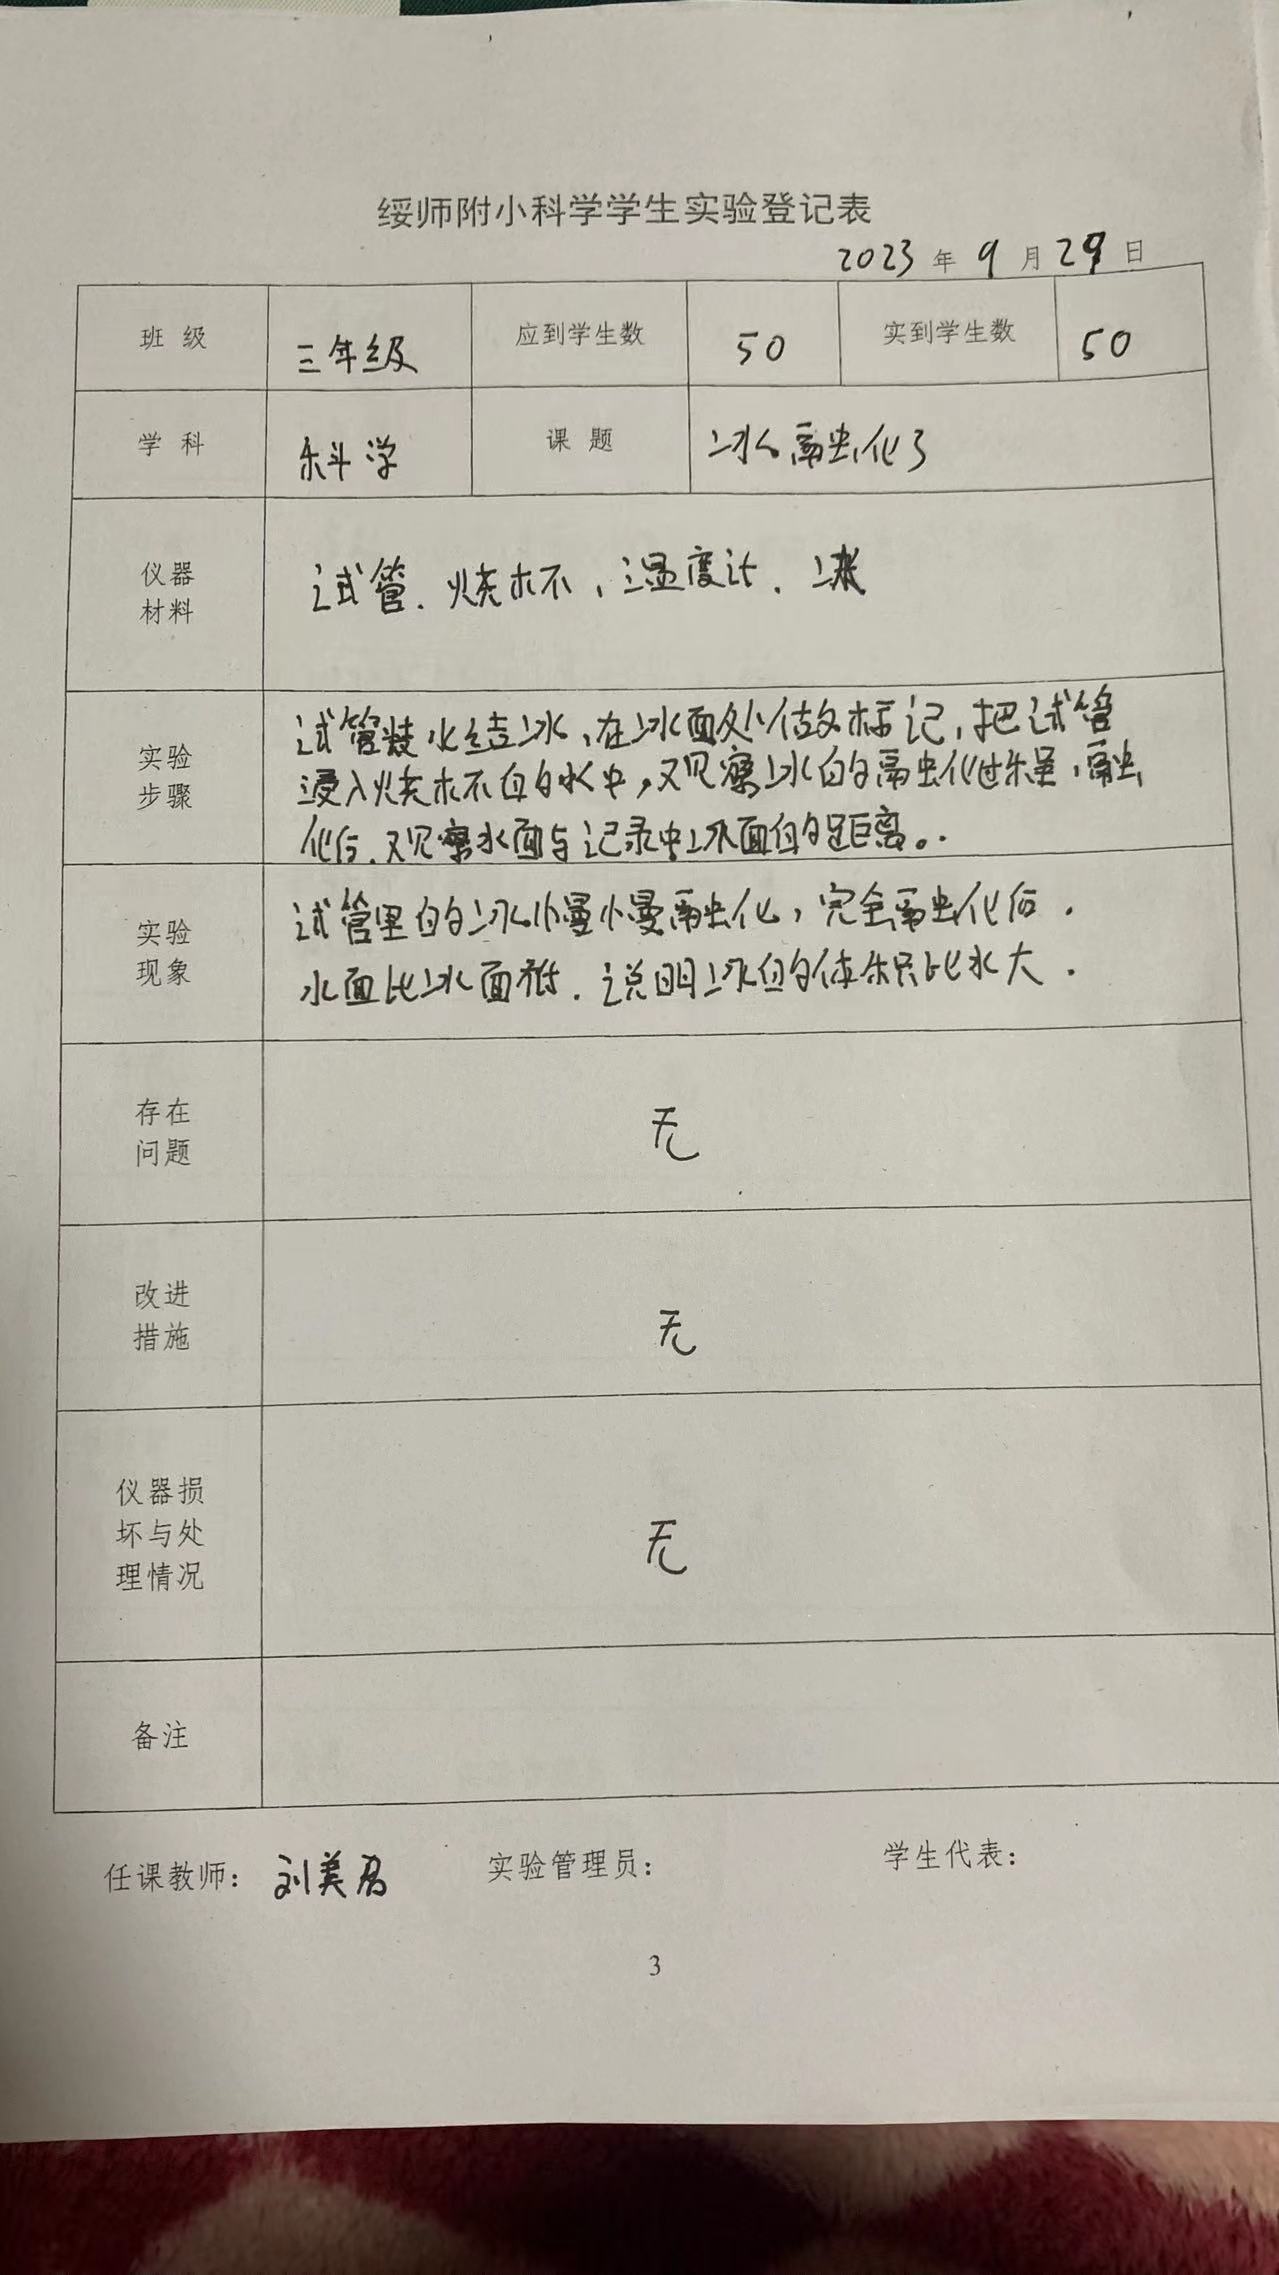 绥师附小科学学生实验登记表
2023 年 9 月 27 日
班 级 三年级 应到学生数 50 实到学生数 50
学 科 科学 课 题 冰融化了
仪器
材料
试管. 烧杯, 温度计. 冰
实验
步骤
试管装水结冰,在冰面处做好标记,把试管
浸入烧杯的水中,观察冰的融化过程,融
化后.观察水面与记录中冰面的距离。.
实验
现象
试管里的冰慢慢融化,完全融化后.
水面比冰面低.说明冰的体积比水大.
存在
问题
无
改进
措施
无
仪器损
坏与处
理情况
无
备注
任课教师: 刘美君 实验管理员: 学生代表:
3